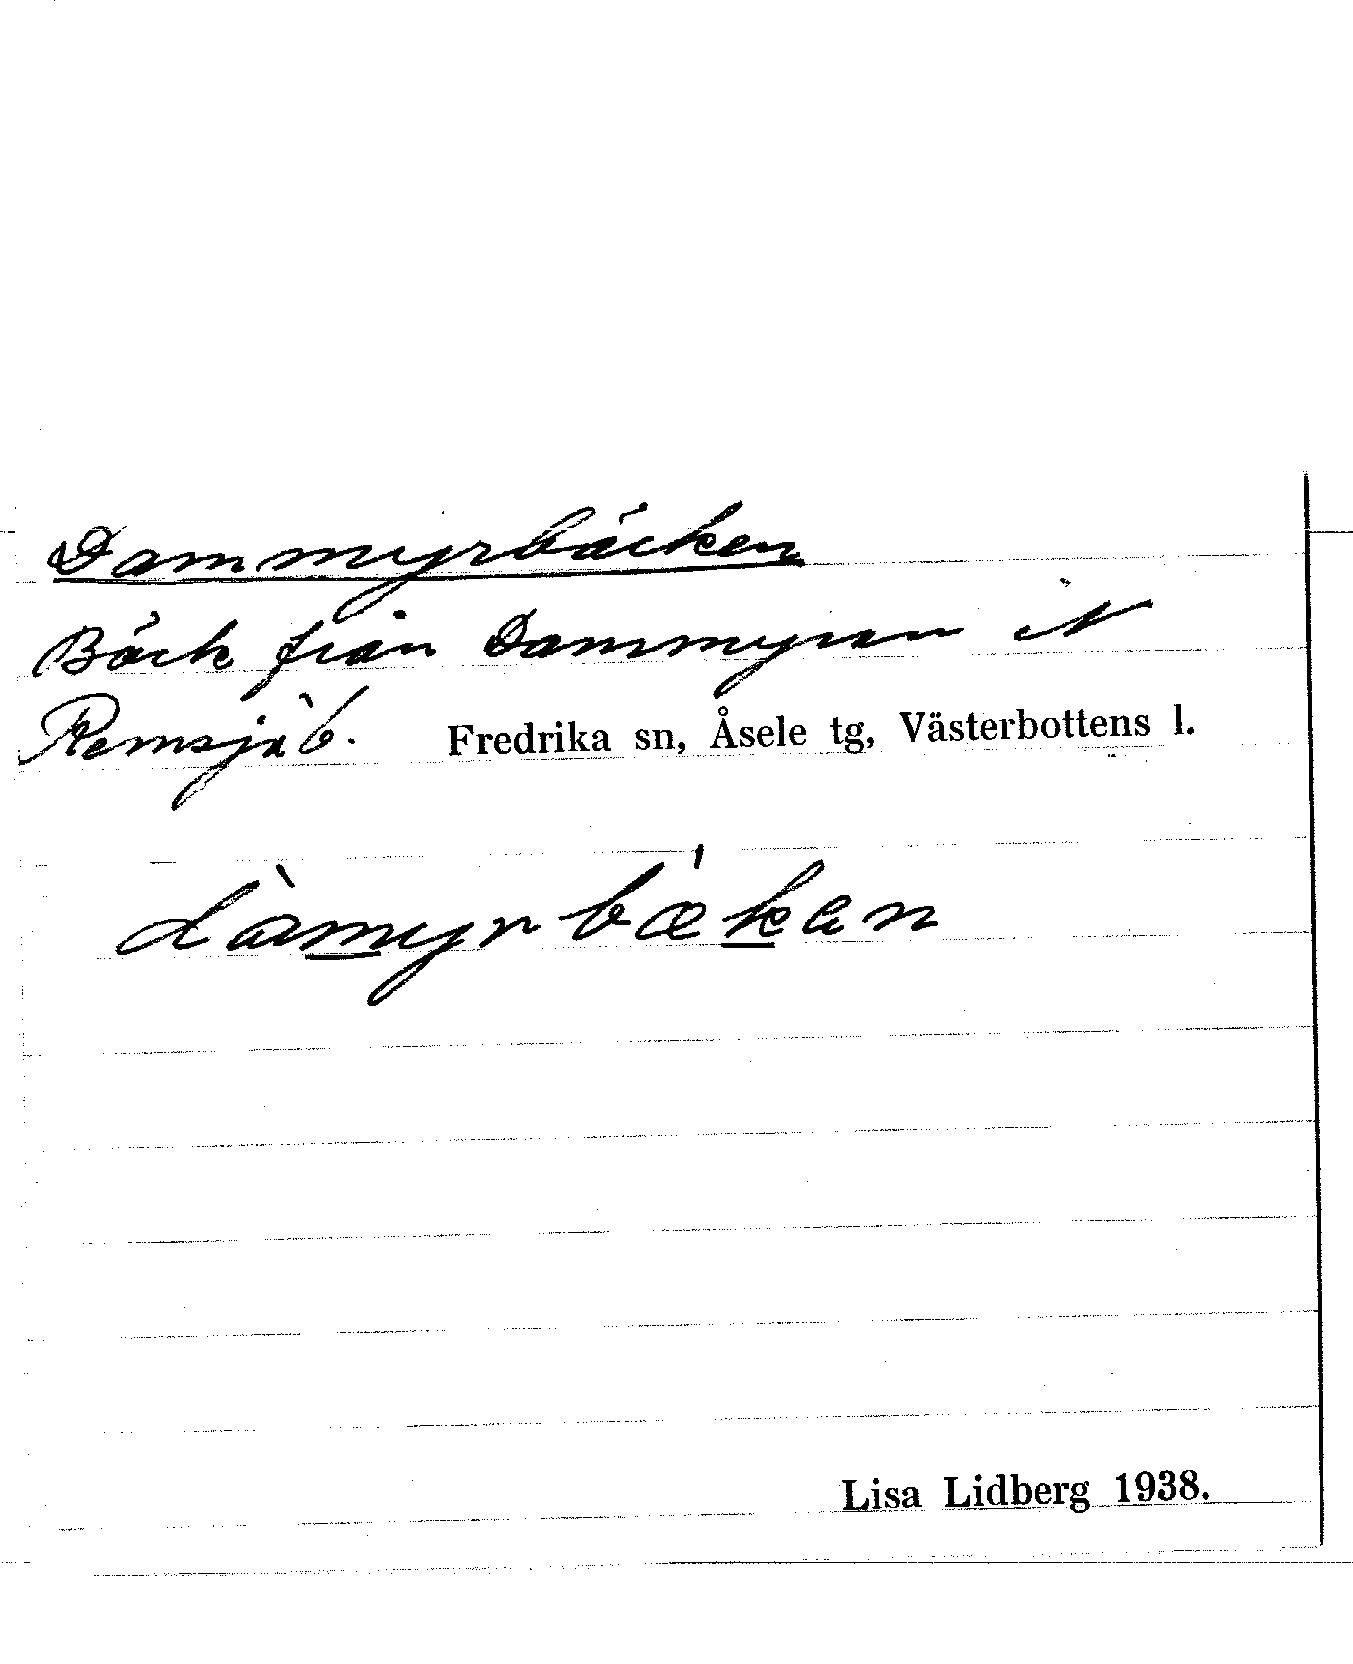 Dammyrbäcken
Bäck från Dammyran i N
Remsjö b. Fredrika sn, Åsele tg, Västerbottens l.
dàmyrbækan
Lisa Lidberg 1938.